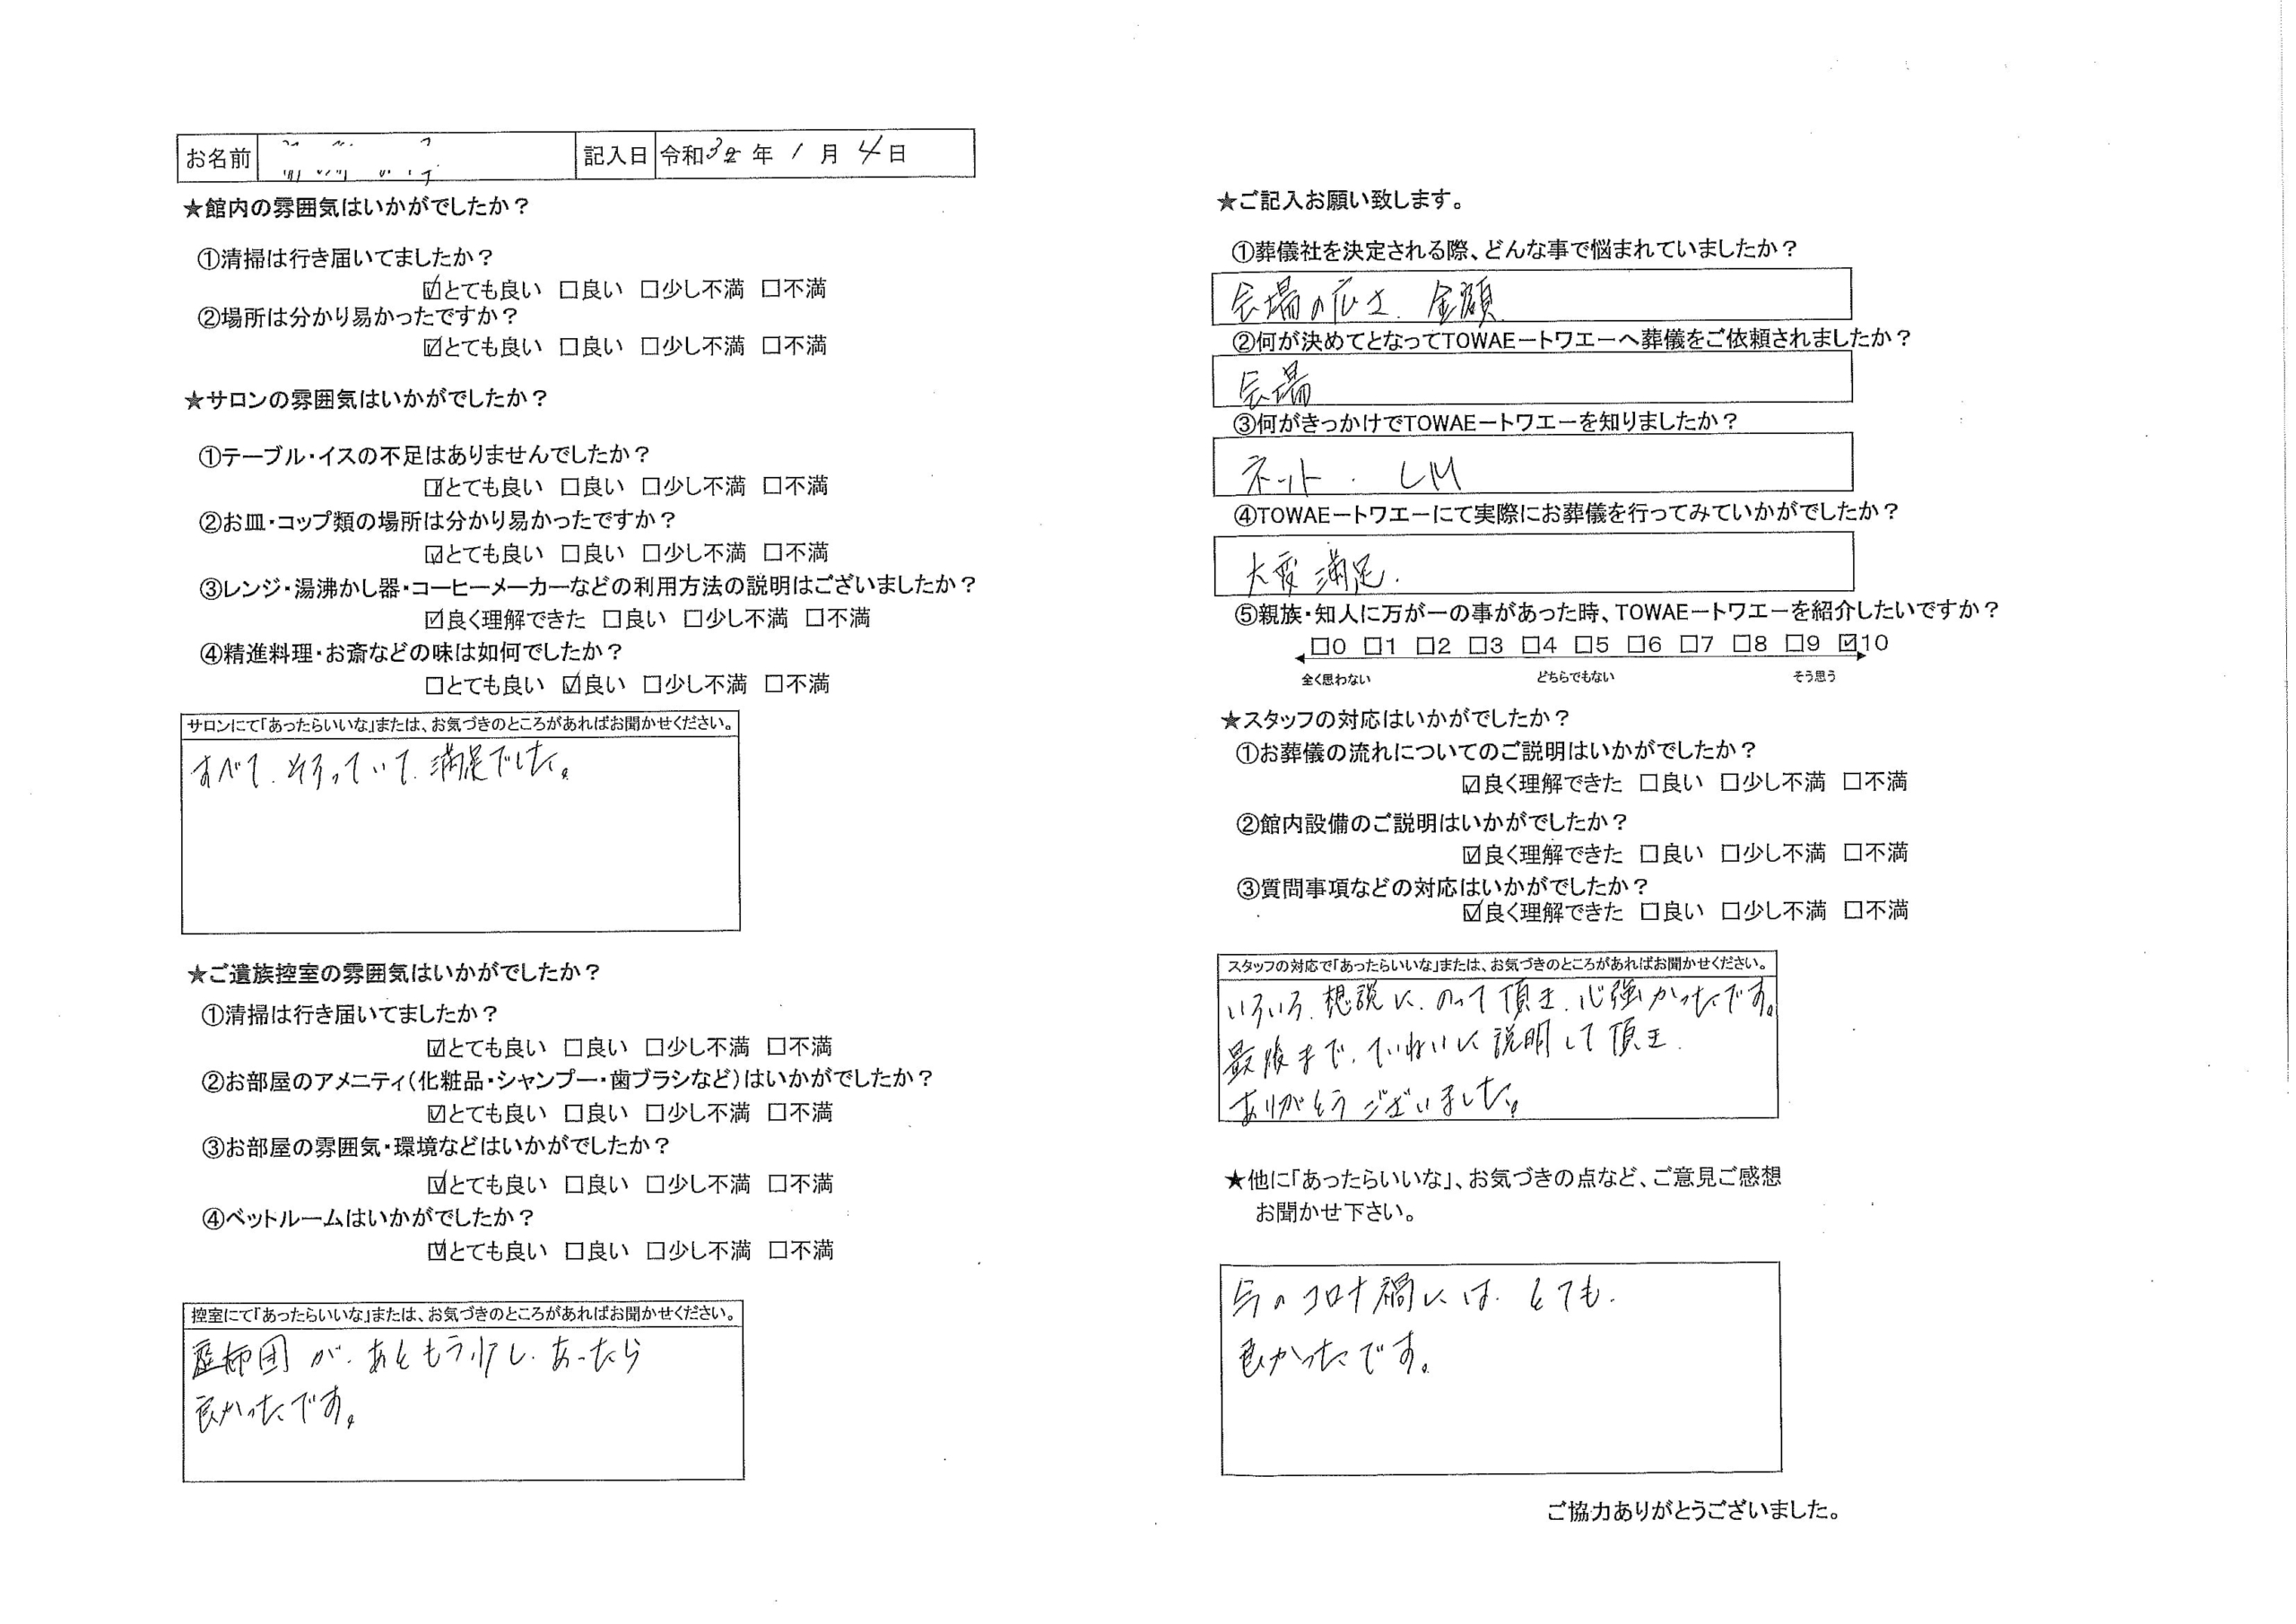 お名前
記入日 令和3年 1月 4日
★館内の雰囲気はいかがでしたか?
①清掃は行き届いてましたか?
☑とても良い □良い □少し不満 □不満
②場所は分かり易かったですか?
☑とても良い □良い □少し不満 □不満
★サロンの雰囲気はいかがでしたか?
①テーブル・イスの不足はありませんでしたか?
☑とても良い □良い □少し不満 □不満
②お皿・コップ類の場所は分かり易かったですか?
☑とても良い □良い □少し不満 □不満
③レンジ・湯沸かし器・コーヒーメーカーなどの利用方法の説明はございましたか?
☑良く理解できた □良い □少し不満 □不満
④精進料理・お斎などの味は如何でしたか?
□とても良い ☑良い □少し不満 □不満
サロンにて「あったらいいな」または、お気づきのところがあればお聞かせください。
すべて、そろっていて、満足でした。
★ご遺族控室の雰囲気はいかがでしたか?
①清掃は行き届いてましたか?
☑とても良い □良い □少し不満 □不満
②お部屋のアメニティ(化粧品・シャンプー・歯ブラシなど)はいかがでしたか?
☑とても良い □良い □少し不満 □不満
③お部屋の雰囲気・環境などはいかがでしたか?
☑とても良い □良い □少し不満 □不満
④ベットルームはいかがでしたか?
☑とても良い □良い □少し不満 □不満
控室にて「あったらいいな」または、お気づきのところがあればお聞かせください。
が、あともう少し、あったら
良かったです。
★ご記入お願い致します。
①葬儀社を決定される際、どんな事で悩まれていましたか?
会場の広さ、金額
②何が決めてとなってTOWAEートワエーへ葬儀をご依頼されましたか?
会場
③何がきっかけでTOWAEートワエーを知りましたか?
ネット、
④TOWAEートワエーにて実際にお葬儀を行ってみていかがでしたか?
大変満足.
⑤親族・知人に万が一の事があった時、TOWAEートワエーを紹介したいですか?
□0 □1 □2 □3 □4 □5 □6 □7 □8 □9 ☑10
全く思わない どちらでもない そう思う
★スタッフの対応はいかがでしたか?
①お葬儀の流れについてのご説明はいかがでしたか?
☑良く理解できた □良い □少し不満 □不満
②館内設備のご説明はいかがでしたか?
☑良く理解できた □良い □少し不満 □不満
③質問事項などの対応はいかがでしたか?
☑良く理解できた □良い □少し不満 □不満
スタッフの対応で「あったらいいな」または、お気づきのところがあればお聞かせください。
いろいろ、想談に、のって頂き、心強かったです。
最後まで、ていねいに説明して頂き、
ありがとうございました。
★他に「あったらいいな」、お気づきの点など、ご意見ご感想
お聞かせ下さい。
今のコロナ禍には、とても、
良かったです。
ご協力ありがとうございました。